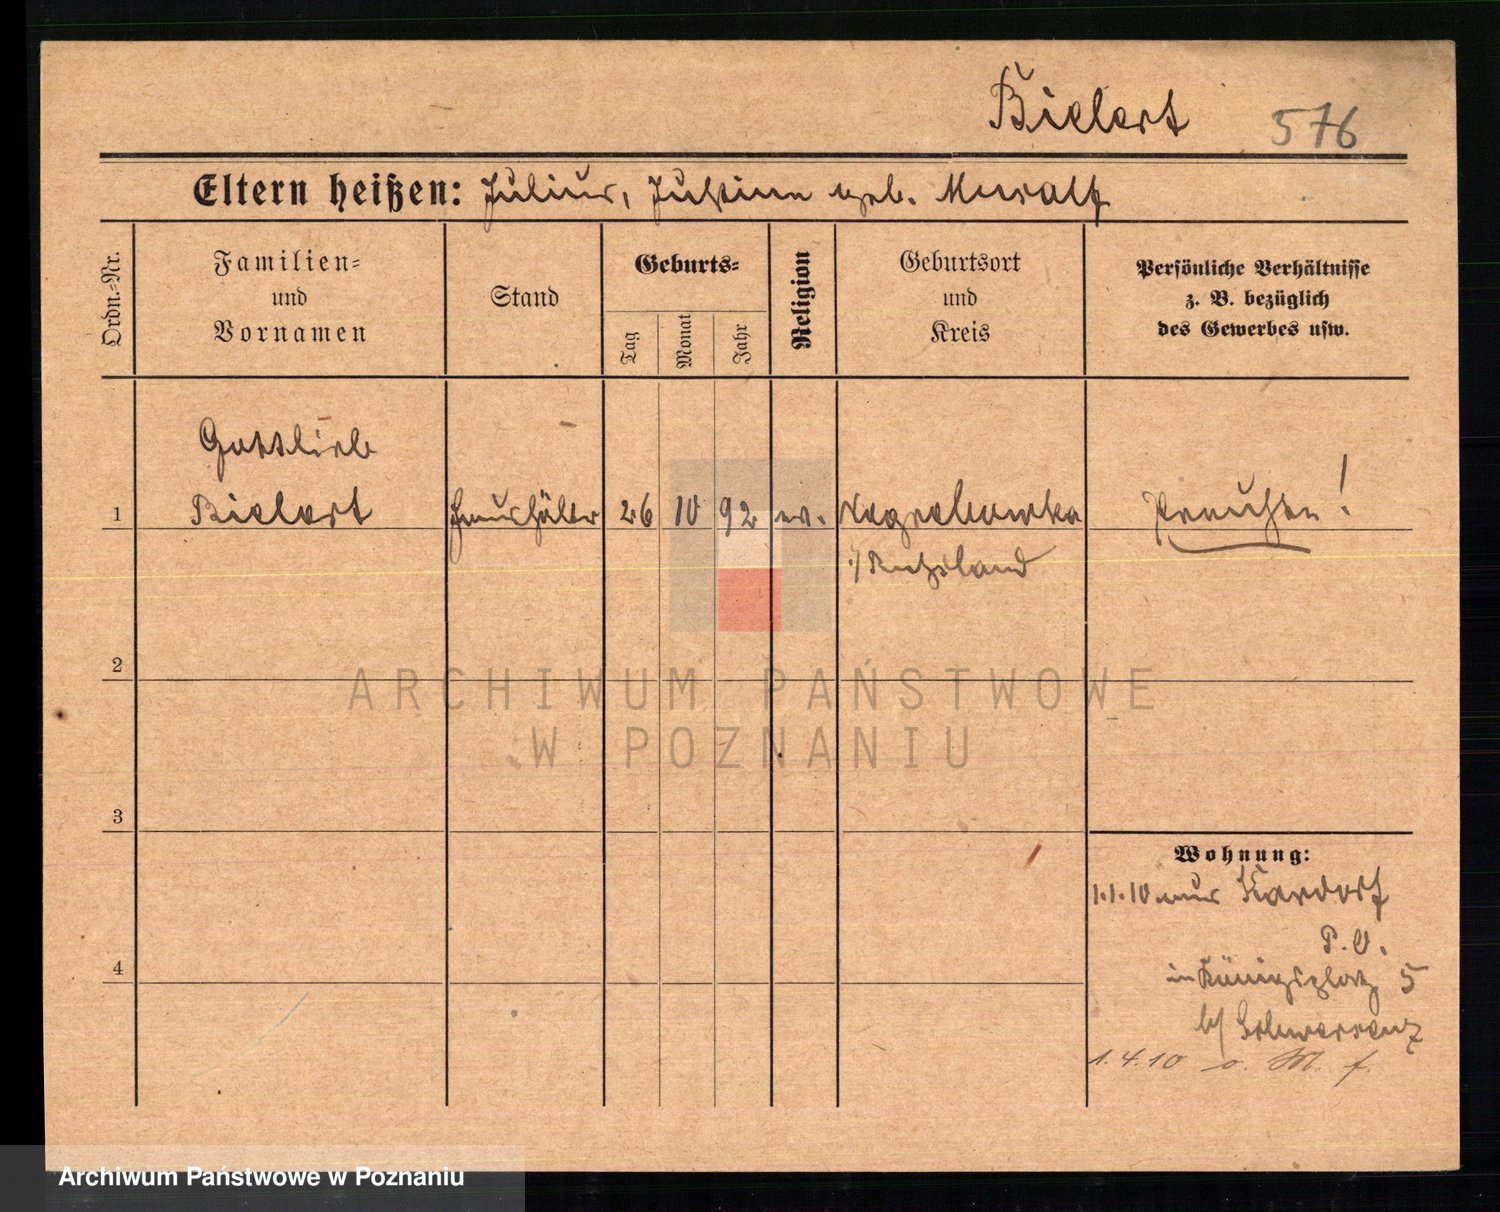 Bielert 576
Eltern heißen: Julius, Justine geb.
Ordn.-Nr.
Familien-
und
Vornamen
Stand
Geburts-
Tag
Monat
Jahr
Religion
Geburtsort
und
Kreis
Persönliche Verhältnisse
z. B. bezüglich
des Gewerbes usw.
Gottlieb
1 Bielert Haushälter 26 10 92 ev. Preußen!
i/ Rußland
2
ARCHIWUM PAŃSTWOWE
W POZNANIU
3
Wohnung:
1.1.10 aus Kardorf
P. O.
in Königsplatz 5
b/ Schwersenz
4
1.4.10
Archiwum Państwowe w Poznaniu